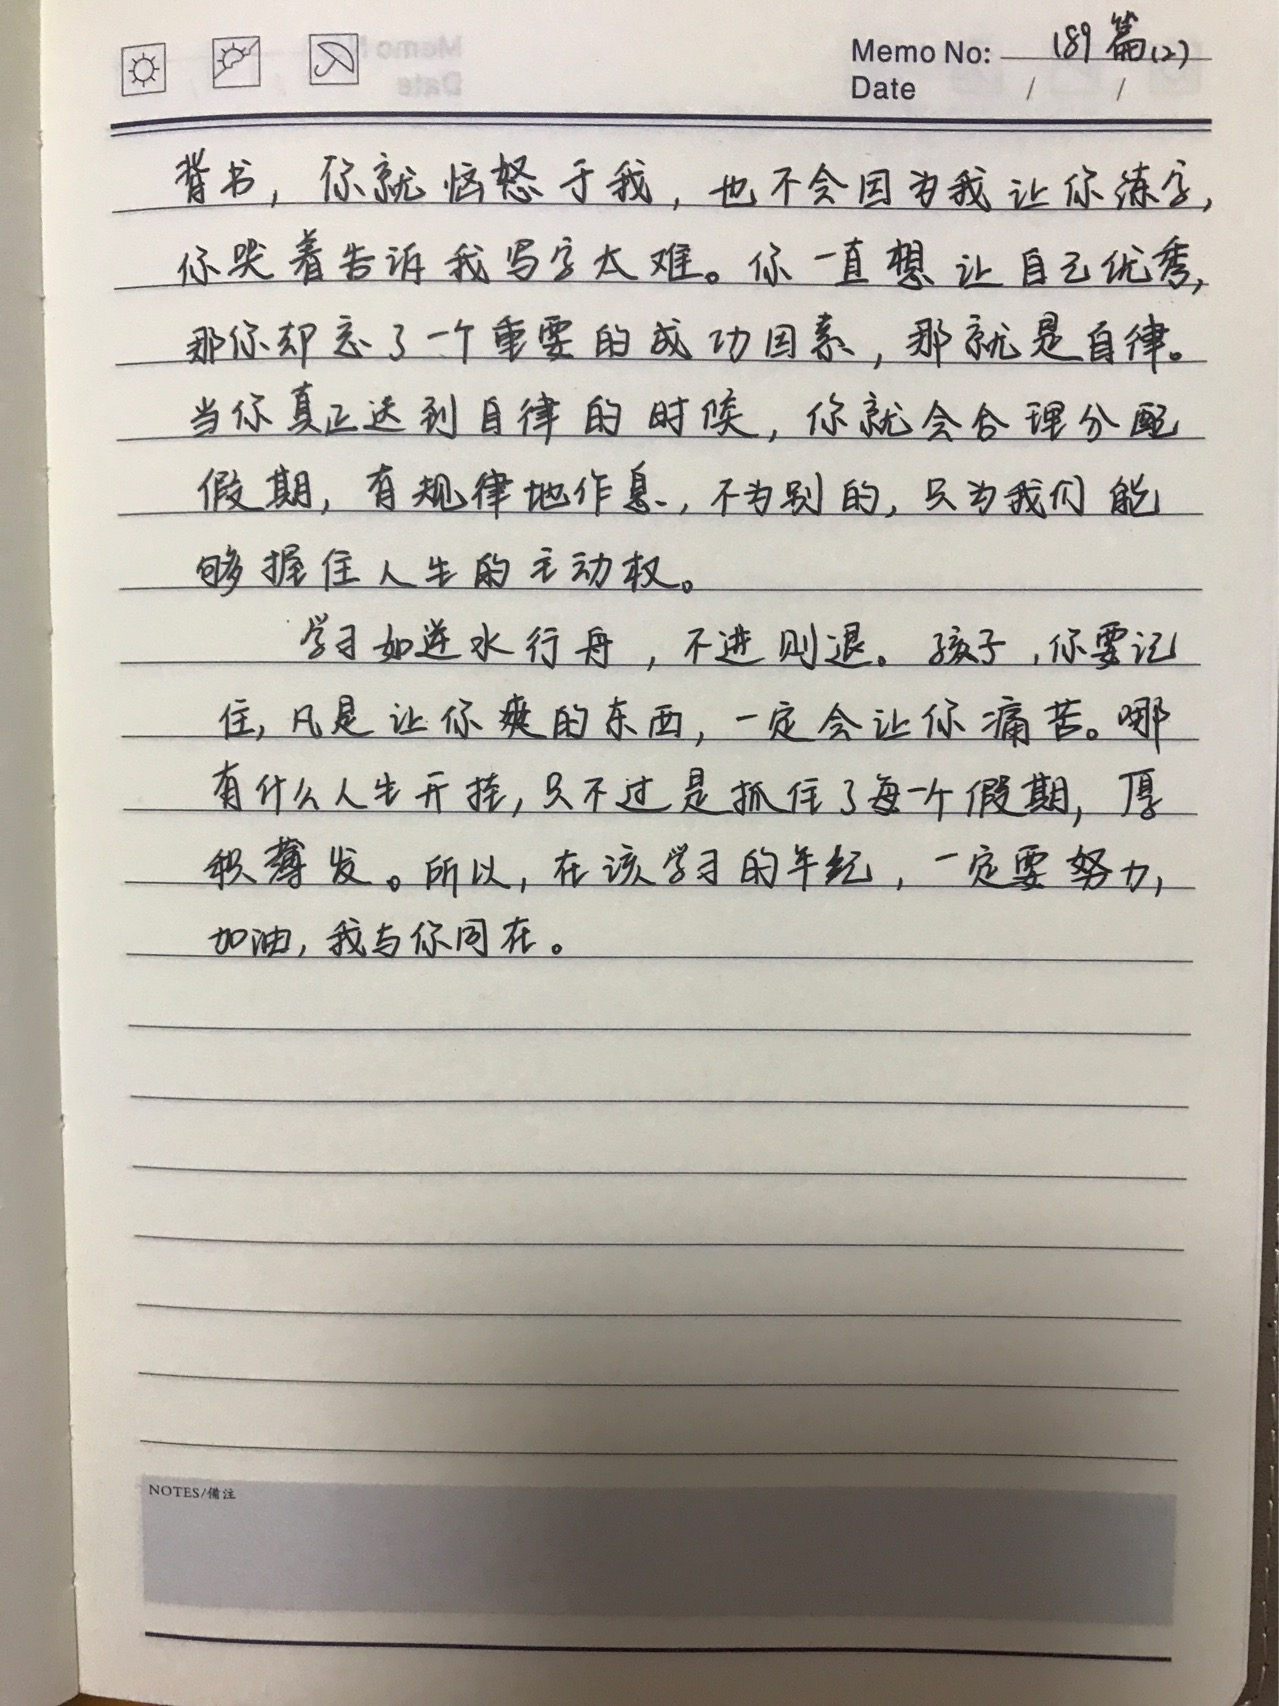 Memo No: 189篇(2)
Date / /
背书，你就恼怒于我，也不会因为我让你练字，
你哭着告诉我写字太难。你一直想让自己优秀，
那你却忘了一个重要的成功因素，那就是自律。
当你真正达到自律的时候，你就会合理分配
假期，有规律地作息，不为别的，只为我们能
够握住人生的主动权。
学习如逆水行舟，不进则退。孩子，你要记
住，凡是让你爽的东西，一定会让你痛苦。哪
有什么人生开挂，只不过是抓住了每一个假期，厚
积薄发。所以，在该学习的年纪，一定要努力，
加油，我与你同在。
NOTES/備注